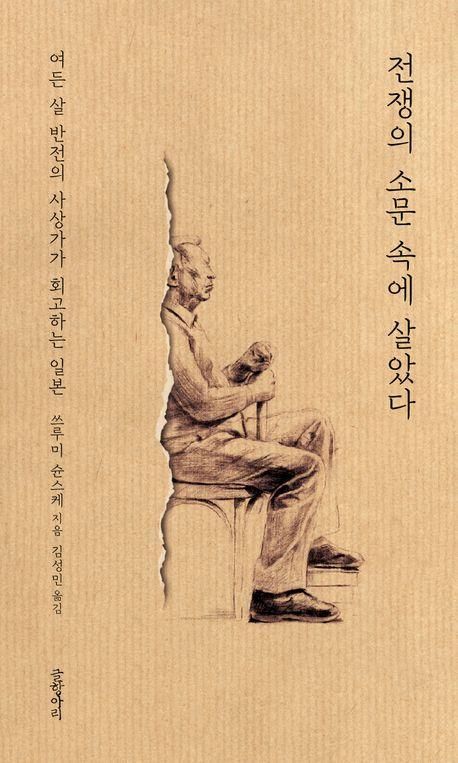 전쟁의 소문 속에 살았다
여든 살 반전의 사상가가 회고하는 일본 쓰루미 슌스케 지음 김성민 옮김
글항아리